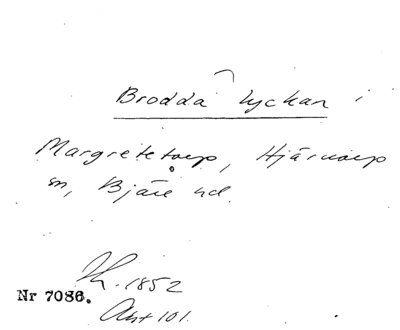 Brodda lyckan i
Margretetorp, Hjärnarp
sn, Bjäre hd.
1852
Nr 7086.
Akt 101.